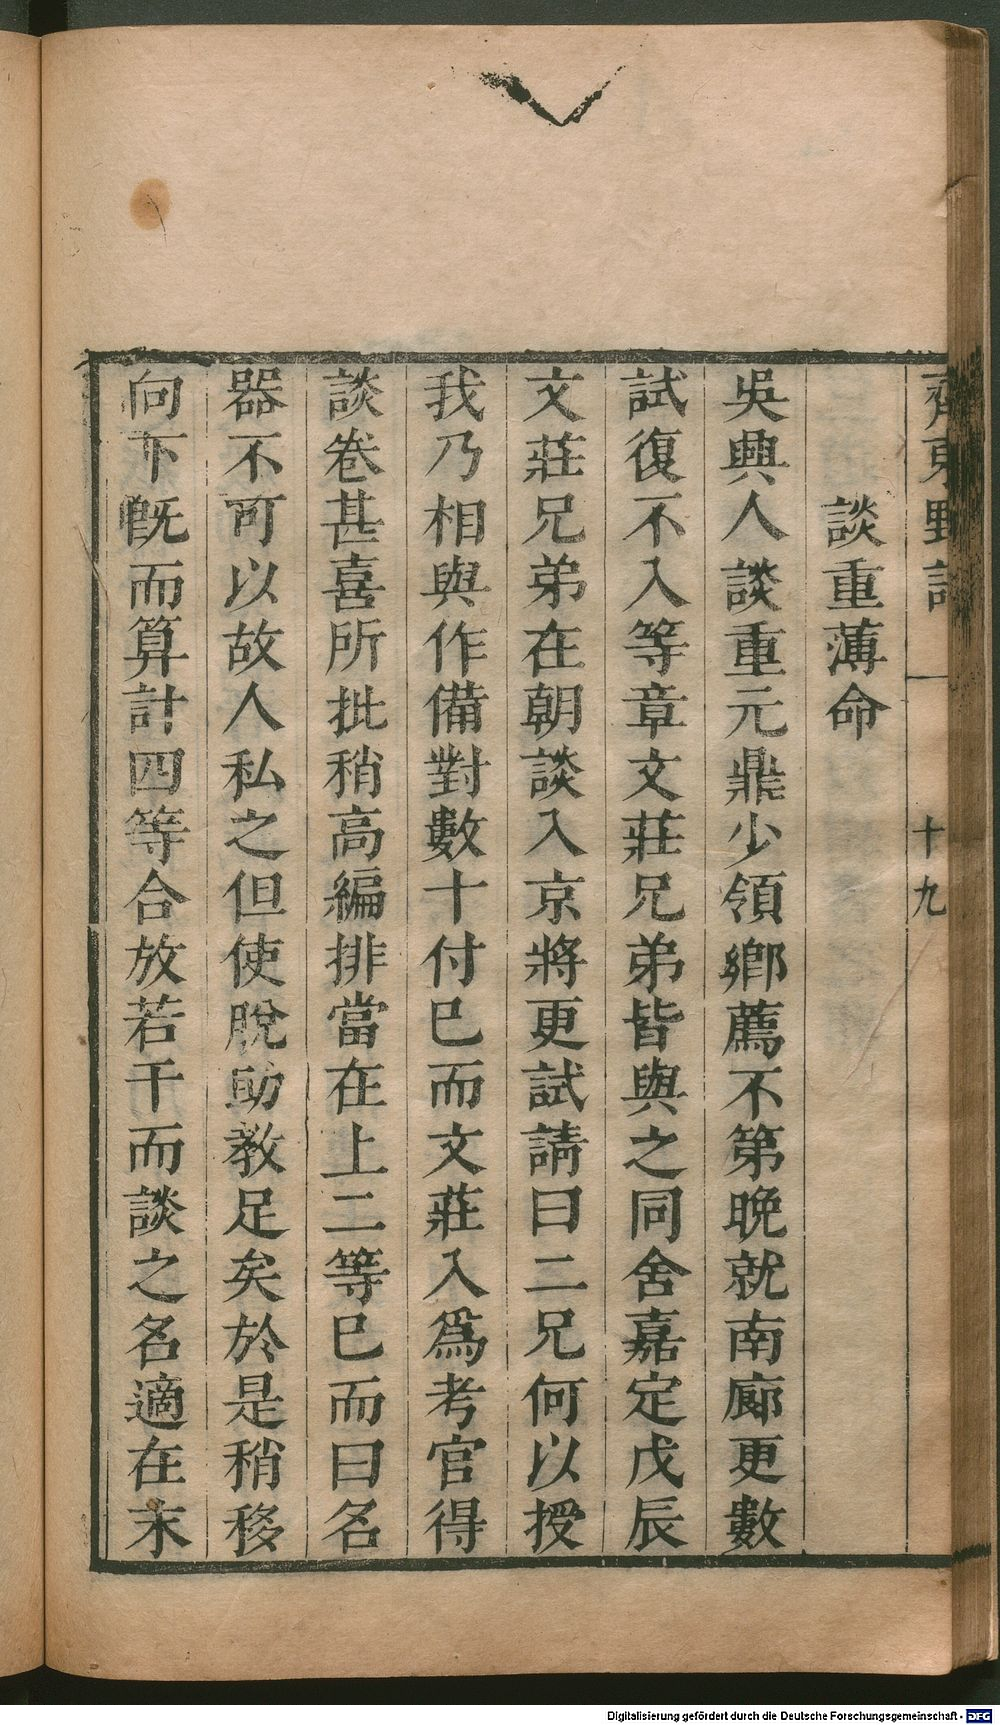 齊東野語 一 十九
談重薄命
吳興人談重元鼎少領鄉薦不第晚就南廊更數
試復不入等章文莊兄弟皆與之同舍嘉定戊辰
文莊兄弟在朝談入京將更試請曰二兄何以授
我乃相與作備對數十付巳而文莊入爲考官得
談卷甚喜所批稍高編排當在上二等巳而曰名
器不可以故人私之但使脫助教足矣於是稍移
向下旣而算計四等合放若干而談之名適在末
Digitalisierung gefördert durch die Deutsche Forschungsgemeinschaft - DFG